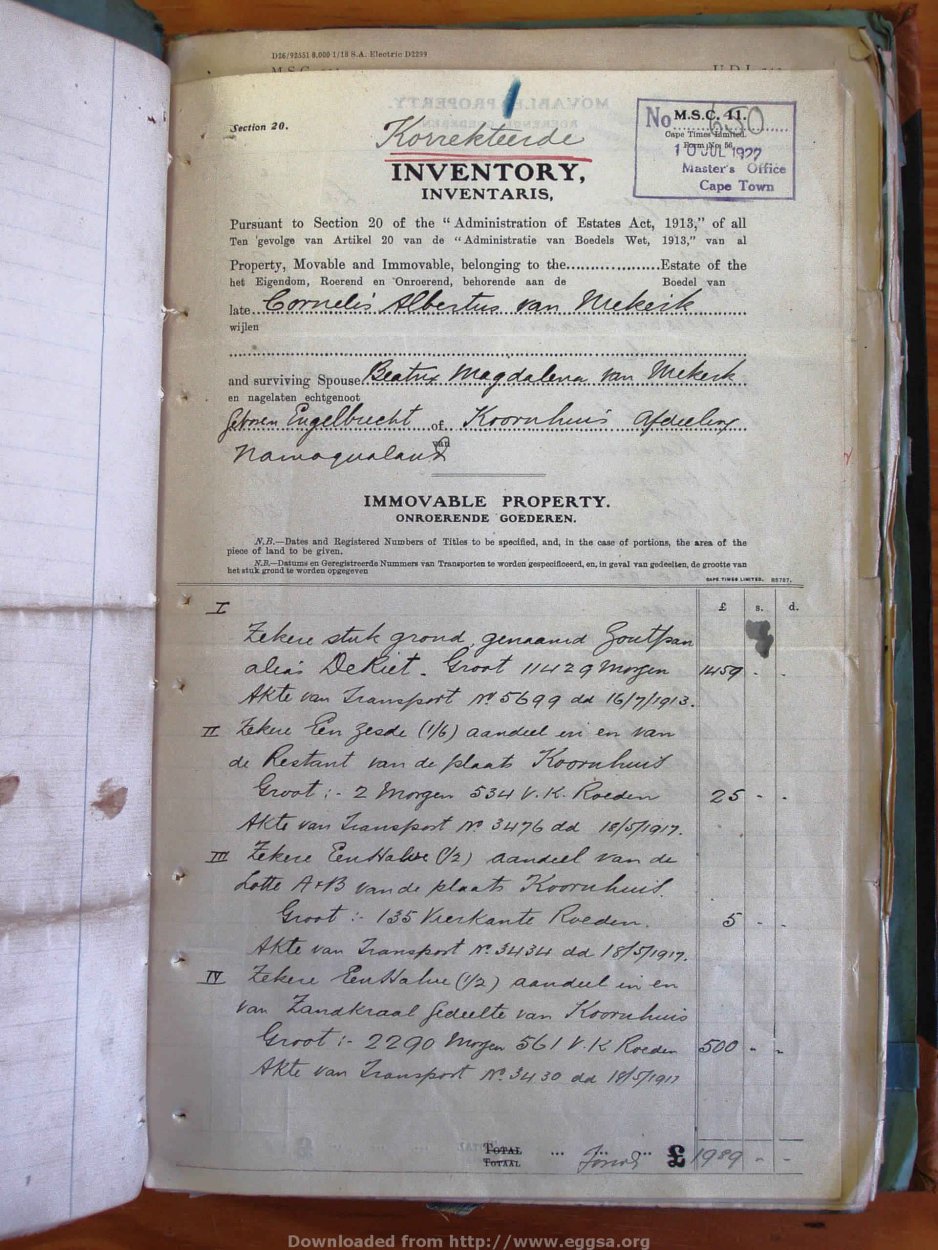 D26/92551 8,000 1/18 S.A. Electric D2299
Section 20.
Korrekteerde
No M.S.C. 41.
Cape Times Limited.
Form No. 56.
10 JUL 1922
Master's Office
Cape Town
INVENTORY,
INVENTARIS,
Pursuant to Section 20 of the "Administration of Estates Act, 1913," of all
Ten gevolge van Artikel 20 van de "Administratie van Boedels Wet, 1913," van al
Property, Movable and Immovable, belonging to the...................Estate of the
het Eigendom, Roerend en Onroerend, behorende aan de Boedel van
late Cornelis Albertus van Niekerk
wijlen
and surviving Spouse Beatrix Magdalena van Niekerk
en nagelaten echtgenoot
Geboren Engelbrecht of Koornhuis Afdeeling
van
Namaqualand
IMMOVABLE PROPERTY.
ONROERENDE GOEDEREN.
N.B.—Dates and Registered Numbers of Titles to be specified, and, in the case of portions, the area of the
piece of land to be given.
N.B.—Datums en Geregistreerde Nummers van Transporten te worden gespecificeerd, en, in geval van gedeelten, de grootte van
het stuk grond te worden opgegeven
CAPE TIMES LIMITED. R5787.
I £ s. d.
Zekere stuk grond, genaamd Zoutpan
alias De Riet - Groot 11429 Morgen 1459 - -
Akte van Transport No 5699 dd 16/7/1913.
II Zekere Een Zesde (1/6) aandeel in en van
de Restant van de plaats Koornhuis
Groot :- 2 Morgen 534 V.K. Roeden 25 - -
Akte van Transport No 3476 dd 18/5/1917.
III Zekere Een Halve (1/2) aandeel van de
Lotte A & B van de plaats Koornhuis
Groot :- 135 Vierkante Roeden. 5 - -
Akte van Transport No 3434 dd 18/5/1917.
IV Zekere Een Halve (1/2) aandeel in en
van Zandkraal gedeelte van Koornhuis
Groot :- 2290 Morgen 561 V.K Roeden 500 - -
Akte van Transport No 3430 dd 18/5/1917
TOTAL ... £ 1989 - -
TOTAAL
Downloaded from http://www.eggsa.org